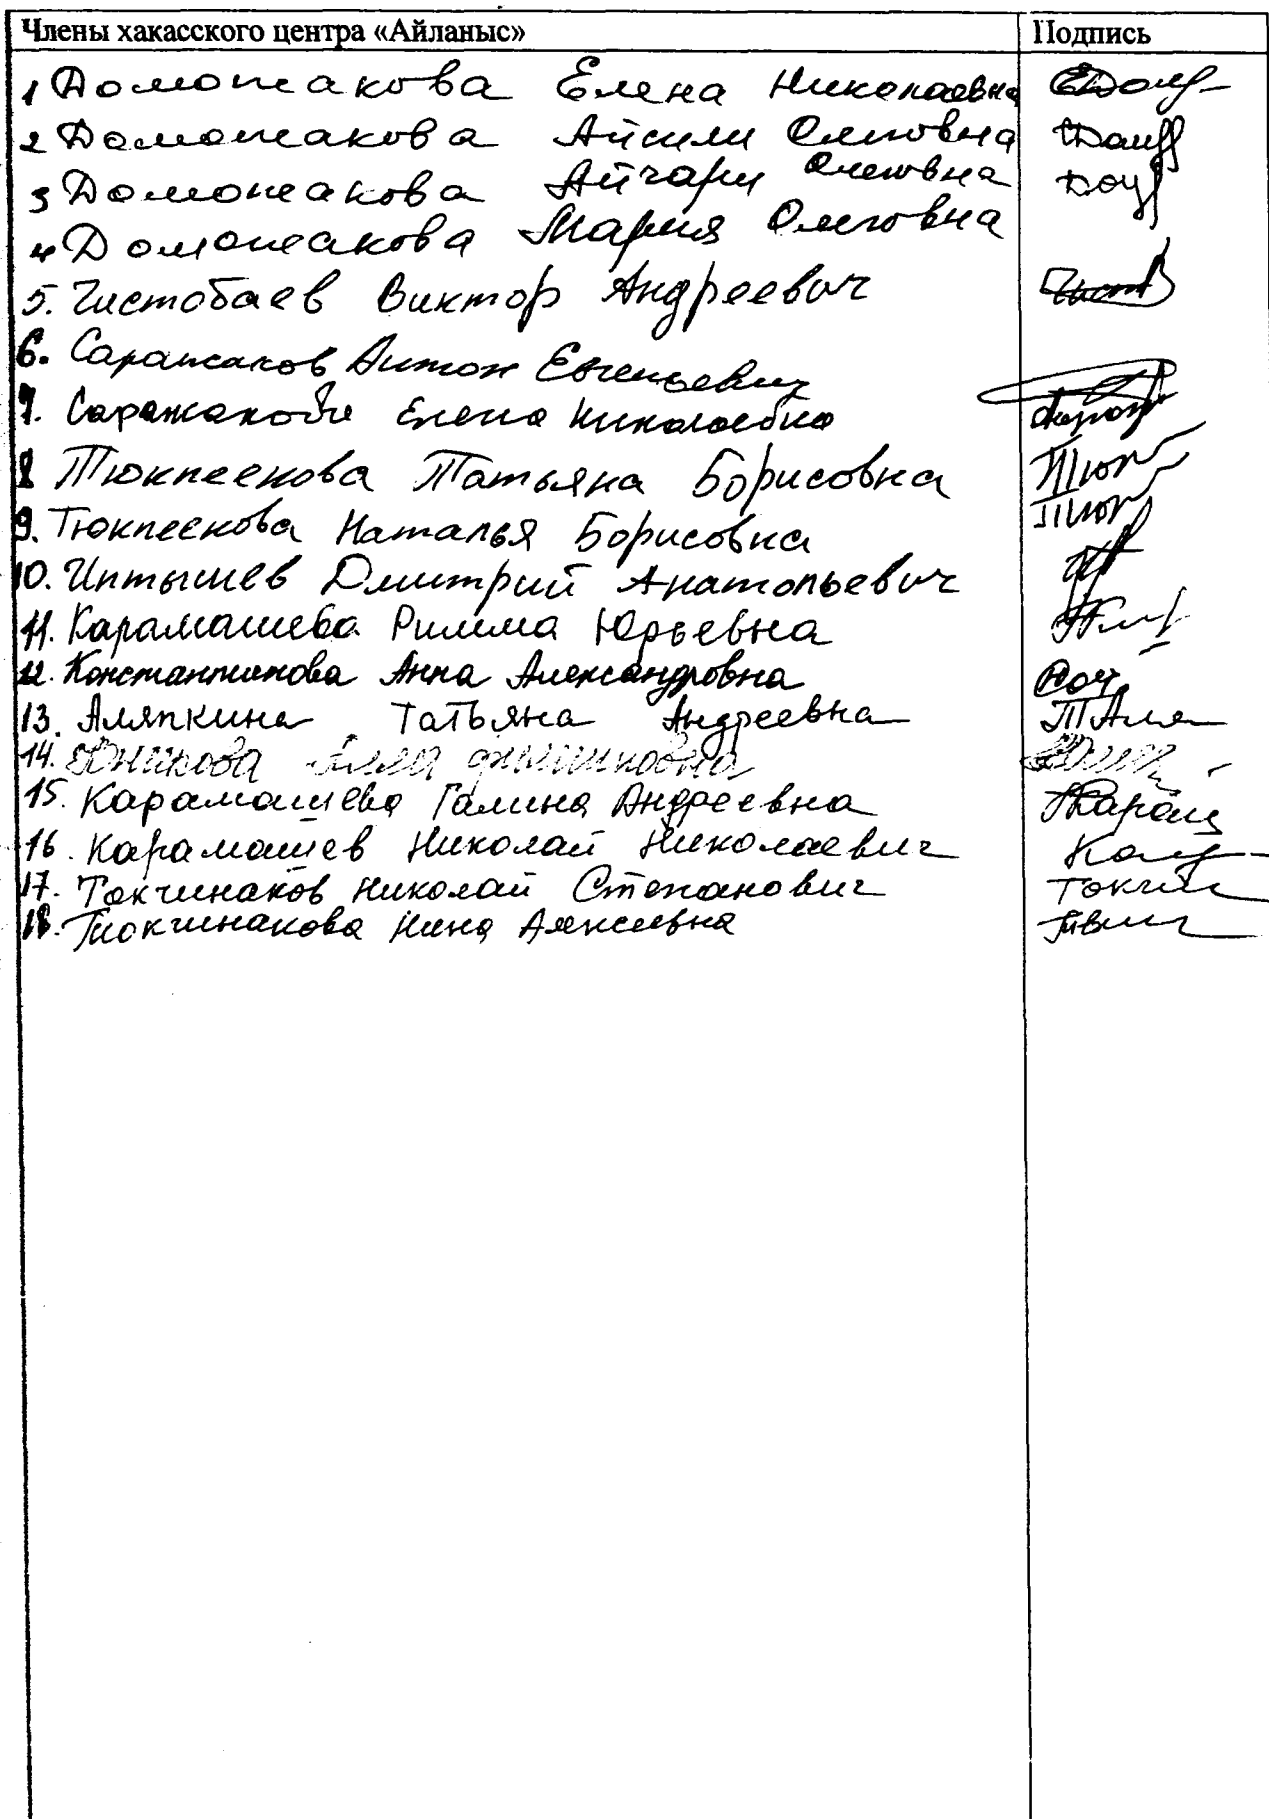 Члены хакасского центра «Айланыс» Подпись
1 Доможакова Елена Николаевна
2 Доможакова Айсили Олеговна
3 Доможакова Айчари Олеговна
4 Доможакова Мария Олеговна
5. Чистобаев Виктор Андреевич
6. Саражаков Антон Евгеньевич
7. Саражакова Елена Николаевна
8 Тюкпеенова Татьяна Борисовна
9. Тюкпеенова Наталья Борисовна
10. Иптышев Дмитрий Анатольевич
11. Карамашева Римма Юрьевна
12. Константинова Анна Александровна
13. Аляпкина Татьяна Андреевна
14.
15. Карамашева Галина Андреевна
16. Карамашев Николай Николаевич
17. Токчинаков Николай Степанович
18. Токчинакова Нина